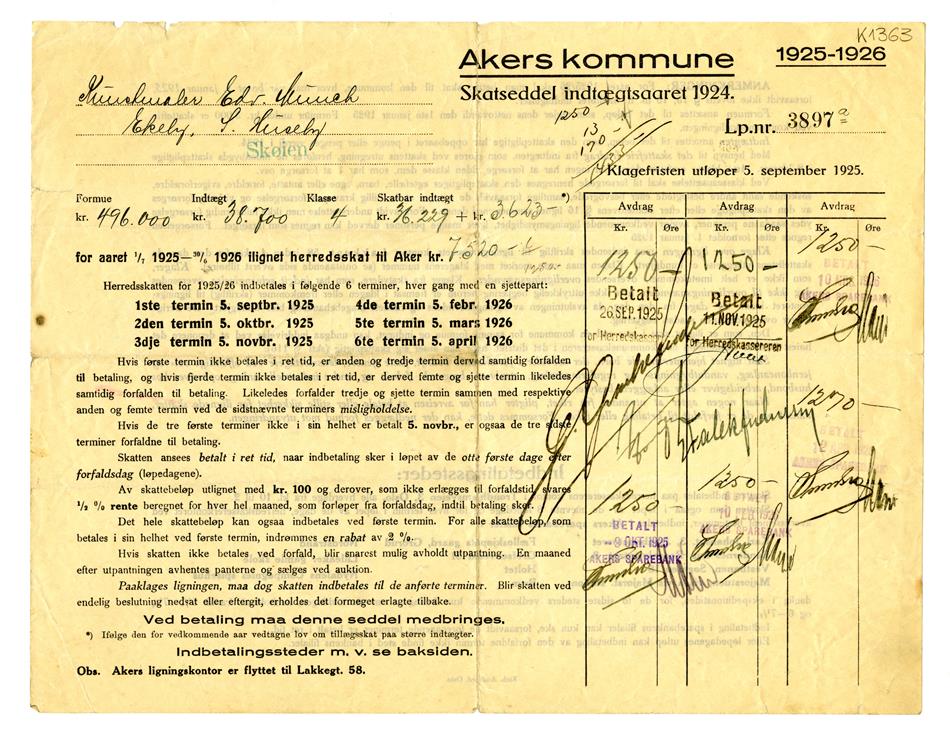 K1363
Akers kommune
1925-1926
Skatseddel indtægtsaaret 1924.
Kunstmaler Edv. Munch
Ekely, S. Huseby
Skøien
1250
13
170
Lp.nr. 3897 a
Klagefristen utløper 5. september 1925.
Formue Indtægt Klasse Skatbar indtægt
kr. 496.000 kr. 38.700 4 kr. 36.229 + kr. 3623 - *)
for aaret 1/7 1925—30/6 1926 ilignet herredsskat til Aker kr. 7520 -
Herredsskatten for 1925/26 indbetales i følgende 6 terminer, hver gang med en sjettepart:
1ste termin 5. septbr. 1925 4de termin 5. febr. 1926
2den termin 5. oktbr. 1925 5te termin 5. mars 1926
3dje termin 5. novbr. 1925 6te termin 5. april 1926
Hvis første termin ikke betales i ret tid, er anden og tredje termin derved samtidig forfalden
til betaling, og hvis fjerde termin ikke betales i ret tid, er derved femte og sjette termin likeledes
samtidig forfalden til betaling. Likeledes forfalder tredje og sjette termin sammen med respektive
anden og femte termin ved de sidstnævnte terminers misligholdelse.
Hvis de tre første terminer ikke i sin helhet er betalt 5. novbr., er ogsaa de tre sidste
terminer forfaldne til betaling.
Skatten ansees betalt i ret tid, naar indbetaling sker i løpet av de otte første dage efter
forfaldsdag (løpedagene).
Av skattebeløp utlignet med kr. 100 og derover, som ikke erlægges til forfaldstid, svares
1/2 % rente beregnet for hver hel maaned, som forløper fra forfaldsdag, indtil betaling sker.
Det hele skattebeløp kan ogsaa indbetales ved første termin. For alle skattebeløp, som
betales i sin helhet ved første termin, indrømmes en rabat av 2 %.
Hvis skatten ikke betales ved forfald, blir snarest mulig avholdt utpantning. En maaned
efter utpantningen avhentes panterne og sælges ved auktion.
Paaklages ligningen, maa dog skatten indbetales til de anførte terminer. Blir skatten ved
endelig beslutning nedsat eller eftergit, erholdes det formeget erlagte tilbake.
Ved betaling maa denne seddel medbringes.
*) Ifølge den for vedkommende aar vedtagne lov om tillægsskat paa større indtægter.
Indbetalingssteder m. v. se baksiden.
Obs. Akers ligningskontor er flyttet til Lakkegt. 58.
Avdrag Avdrag Avdrag
Kr. Øre Kr. Øre Kr. Øre
1250 - 1250 - 1250 -
Betalt
26.SEP.1925
for Herredskassereren
Betalt
11.NOV.1925
for Herredskassereren
1270 -
1250 -
BETALT
-9 OKT. 1925
AKERS SPAREBANK
1250 -
BETALT
AKERS SPAREBANK